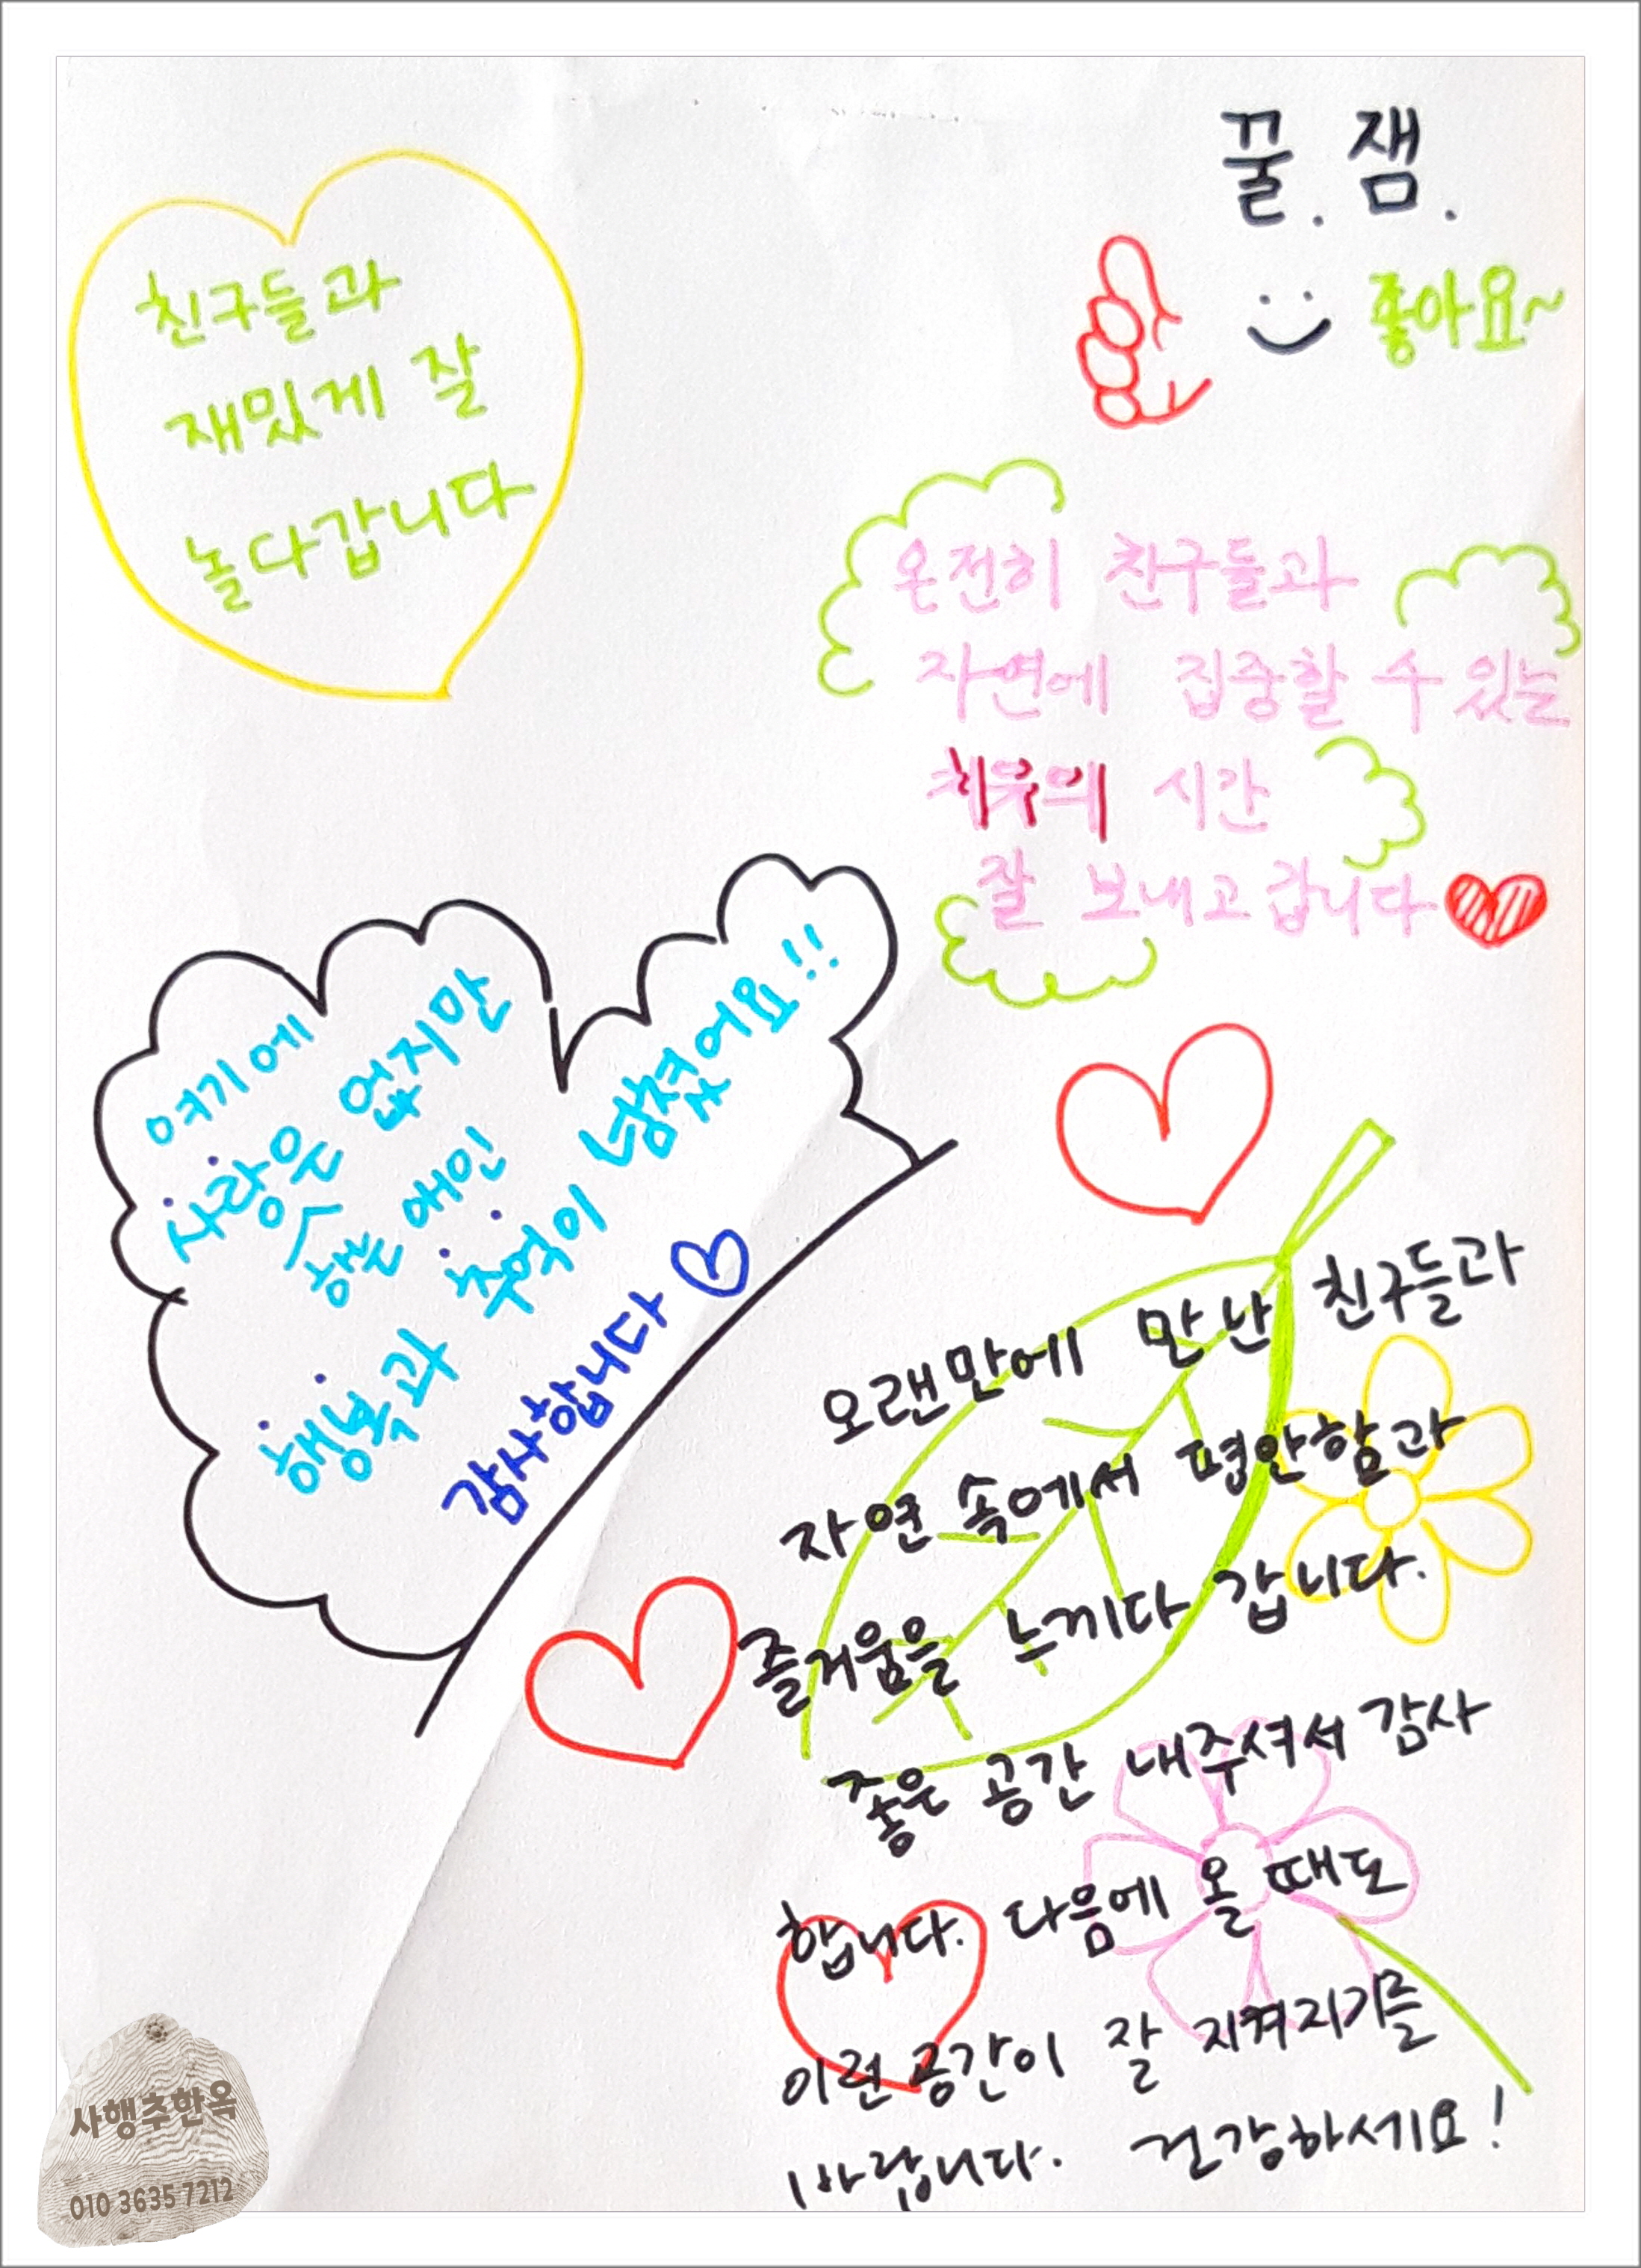 꿀.잼.
좋아요~
친구들과
재밌게 잘
놀다갑니다
온전히 친구들과
자연에 집중할 수 있는
치유의 시간
잘 보내고 갑니다
여기에
사랑은 없지만
하는 애인
행복과 추억이 남겼어요!!
감사합니다
오랜만에 만난 친구들과
자연 속에서 평안함과
즐거움을 느끼다 갑니다.
좋은 공간 내주셔서 감사
합니다. 다음에 올 때도
이런 공간이 잘 지켜지기를
바랍니다. 건강하세요!
사행추한옥
010 3635 7212